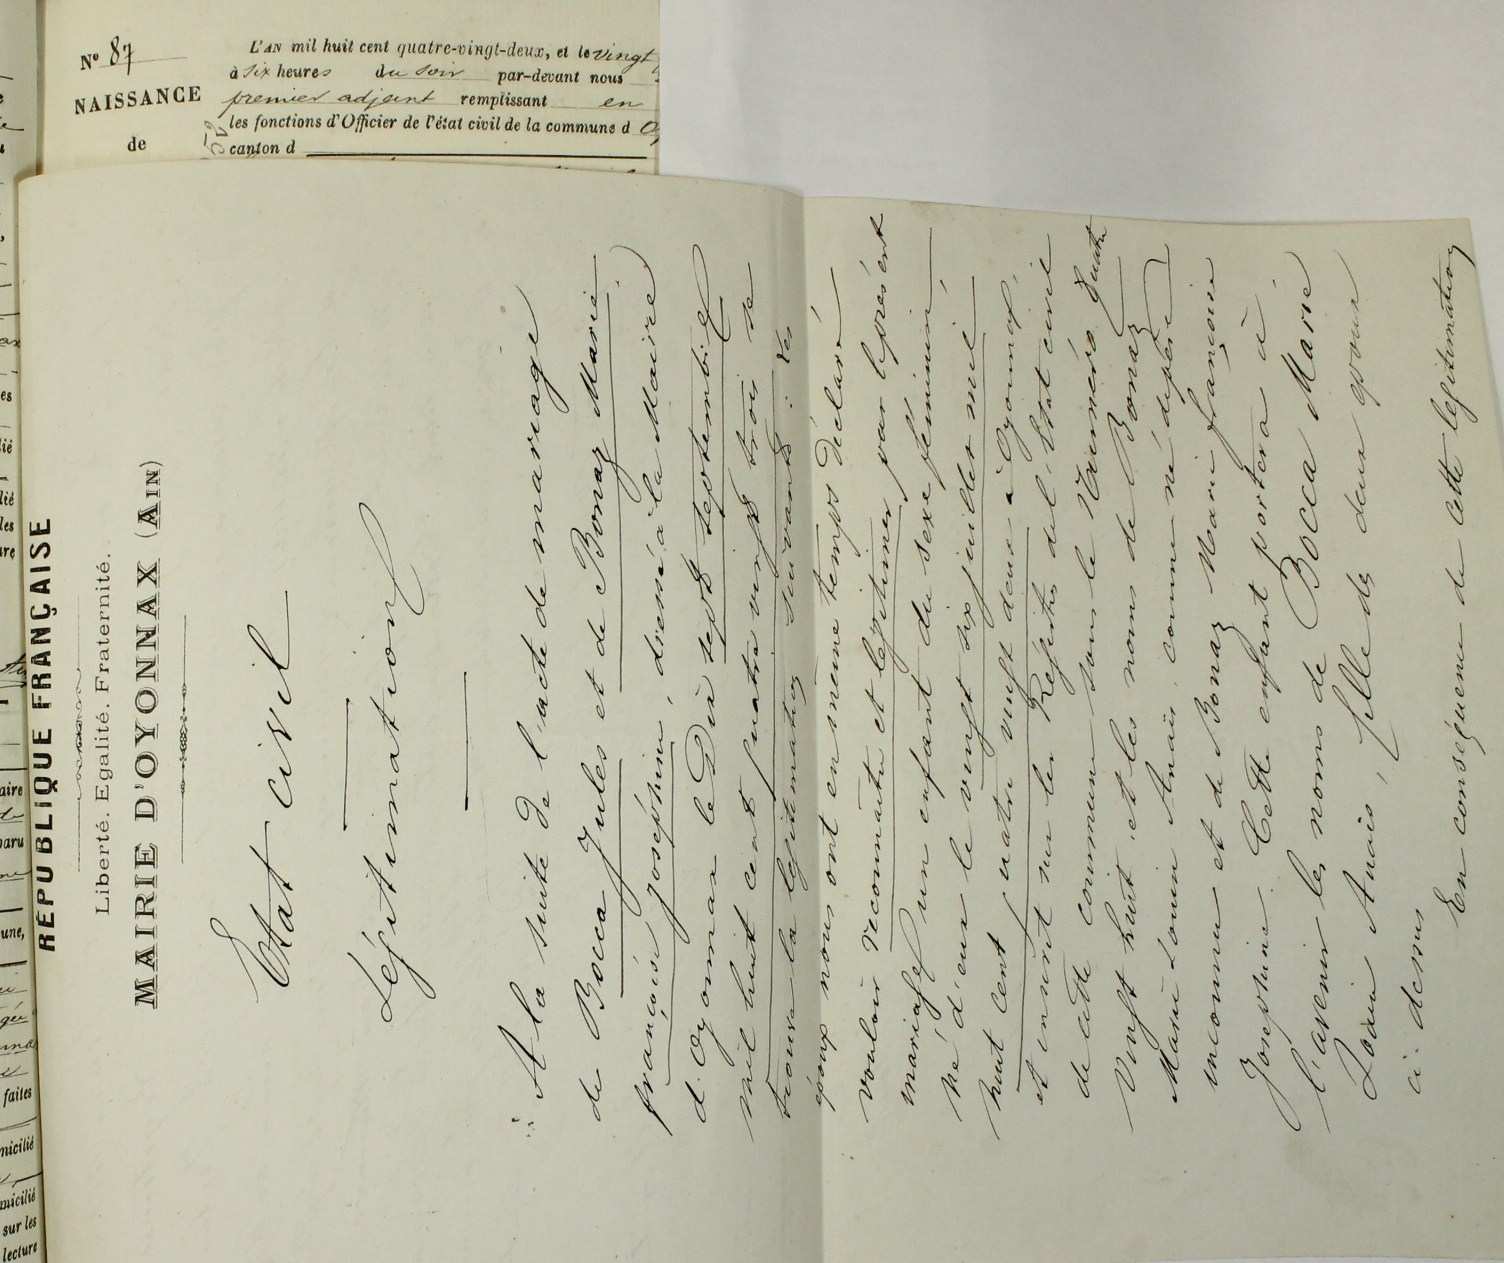 Nº 87
NAISSANCE
de
L'AN mil huit cent quatre-vingt-deux, et le vingt
à six heures du soir par-devant nous
premier adjoint remplissant en
les fonctions d'Officier de l'état civil de la commune d O
canton d
RÉPUBLIQUE FRANÇAISE
Liberté. Egalité. Fraternité.
MAIRIE D'OYONNAX (AIN)
Etat civil
Légitimation
A la suite de l'acte de mariage
de Bocca Jules et de Bonaz Marie
françoise joséphine, dressé à la Mairie
d'Oyonnax le Dix sept septembre
mil huit cent quatre vingt trois se
trouve la légitimation suivante : Les
époux nous ont en même temps déclaré
vouloir reconnaitre et légitimer par le présent
mariage un enfant du sexe féminin,
né d'eux le vingt six juillet mil
huit cent quatre vingt deux à Oyonnax,
et inscrit sur les Registres de l'Etat civil
de cette commune sous le Numéro Quatre
Vingt huit, et les noms de Bonaz
Marie Louise Anaïs, comme né de père
inconnu et de Bonaz Marie françoise
Joséphine. Cette enfant portera à
l'avenir les noms de Bocca Marie
Louise Anaïs, fille des deux époux
ci-dessus
En conséquence de cette légitimation
aire
une,
faites
micilié
sur les
lecture